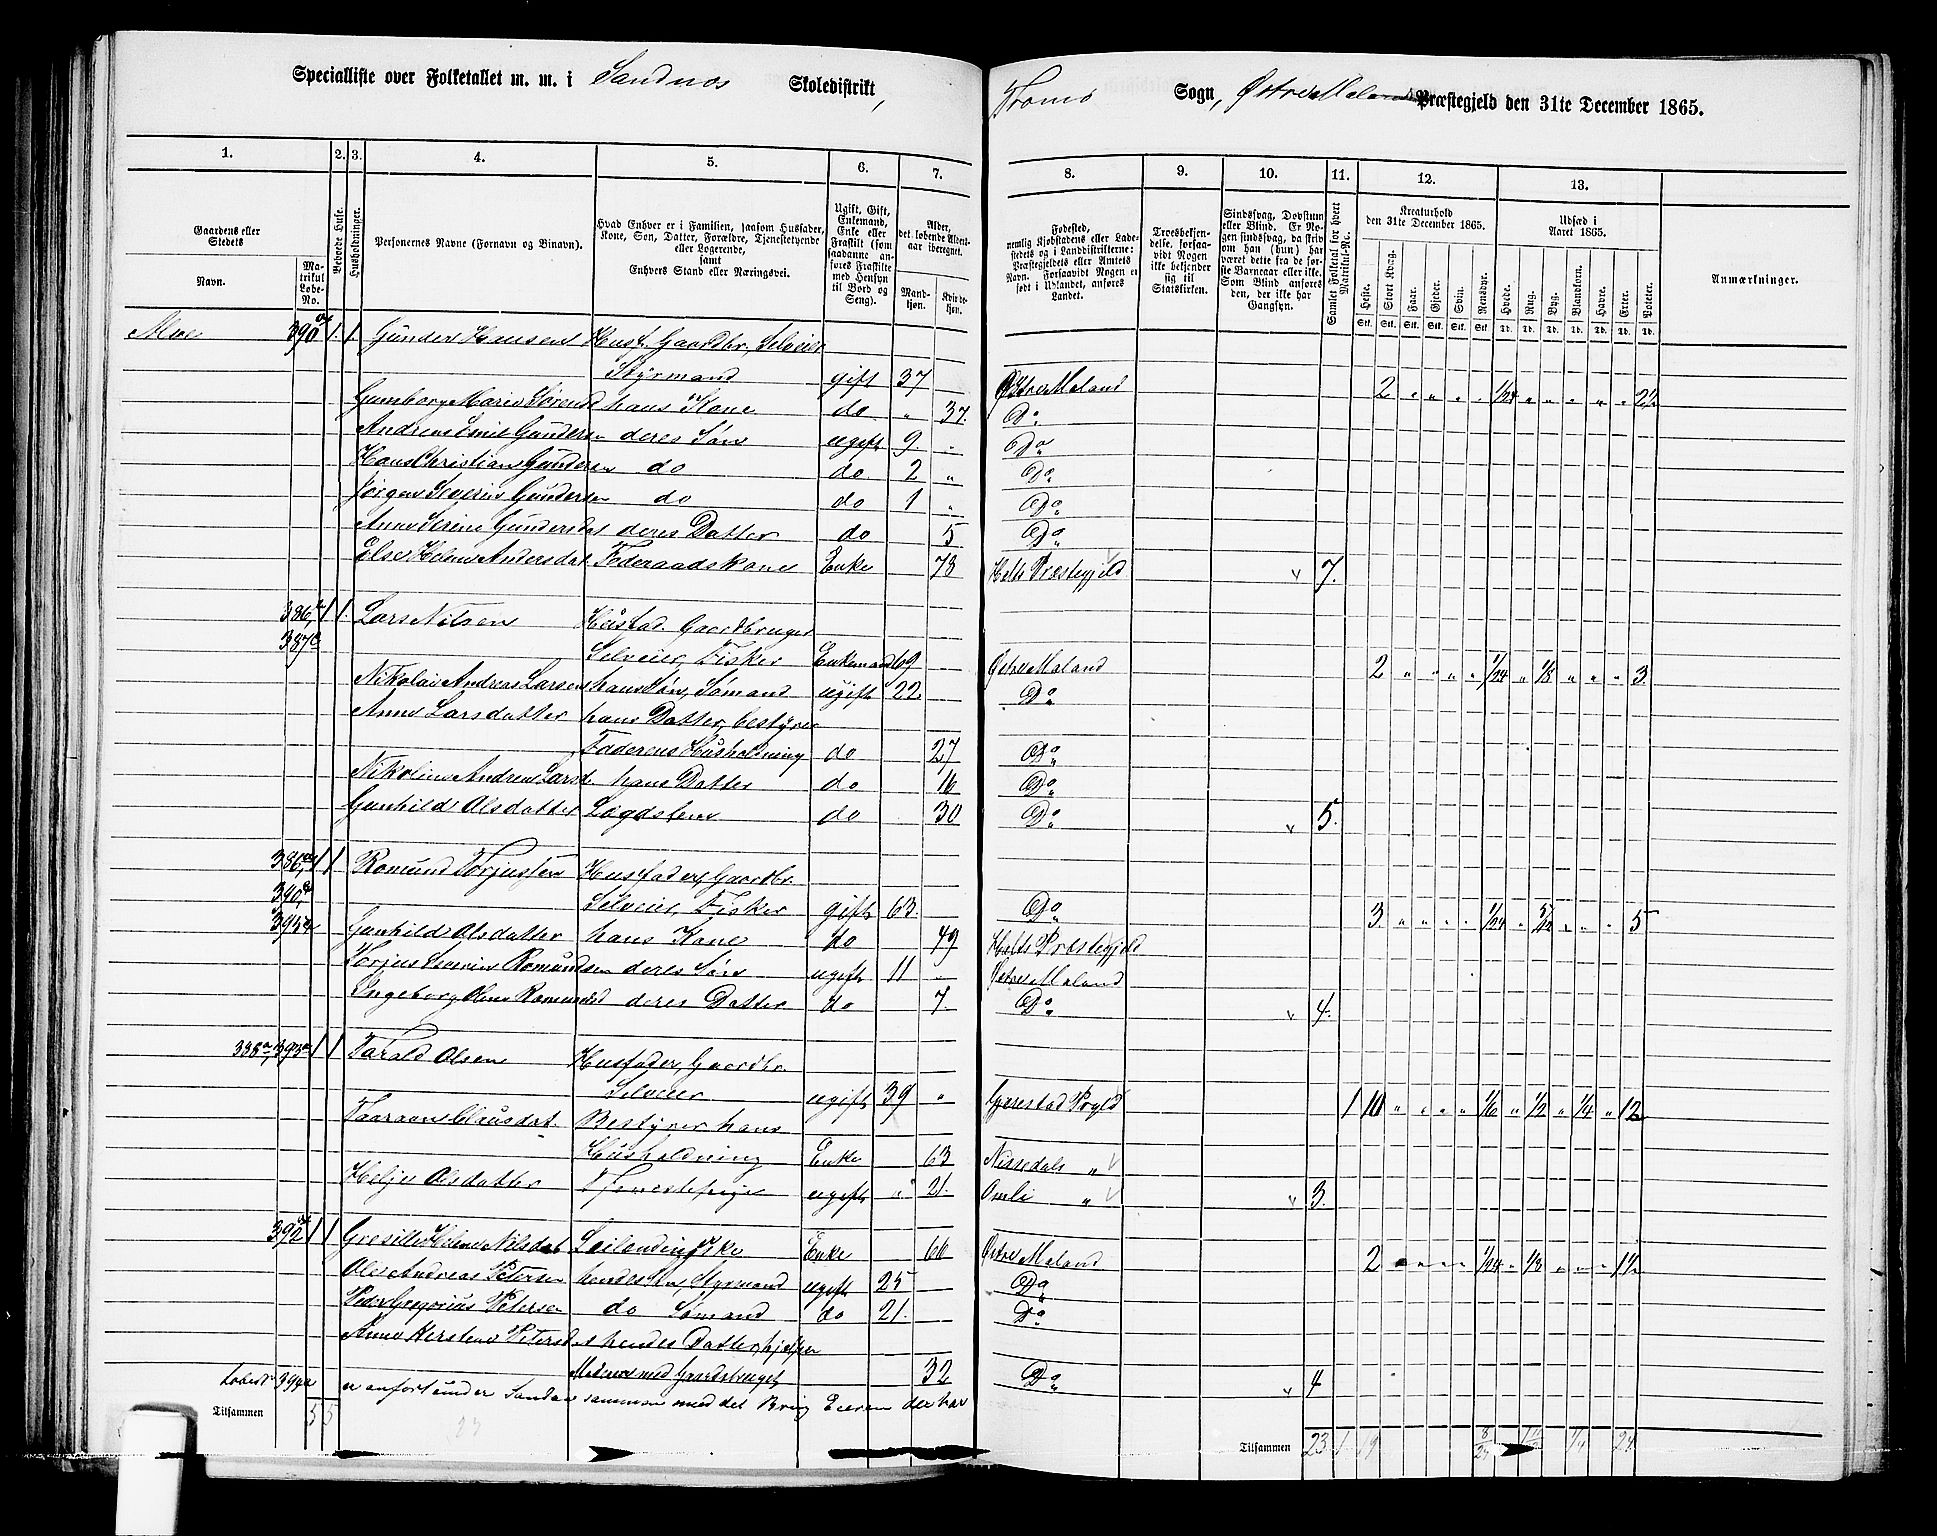 Specialliste over Folketallet m. m. i Sandnæs Skoledistrikt, Tromø Sogn, Østre Moland Præstegjeld den 31te December 1865.
1. 2. 3. 4. 5. 6. 7. 8. 9. 10. 11. 12. 13.
Gaardens eller Stedets Navn. Matrikul Løbe-No.
Bebyede Huse.
Husholdninger.
Personernes Navne (Fornavn og Binavn).
Hvad Enhver er i Familien, saasom Husfader, Kone, Søn, Datter, Forældre, Tjenestetyende eller Logerende, samt Enhvers Stand eller Næringsvei.
Ugift, Gift, Enkemand, Enke eller Fraskilt (som saadanne anføres Fraskilte med Hensyn til Bord og Seng).
Alder, det løbende Aldersaar iberegnet. Mandkjøn. Kvindekjøn.
Fødested, nemlig Kjøbstadens eller Ladestedets og i Landdistrikterne: Præstegjeldets eller Amtets Navn. Forsaavidt Nogen er født i Udlandet, anføres Landet.
Troesbekjendelse, forsaavidt Nogen ikke bekjender sig til Statskirken.
Sindssvag, Døvstum eller Blind. Er Nogen sindssvag, da skrives om han (hun) har været dette fra de første Barneaar eller ikke. Som Blind anføres den, der ikke har Gangsyn.
Samlet Folketal for hvert Matrikul-Nr.
Kreaturhold den 31te December 1865. Heste. Stort Kvæg. Faar. Gjeder. Svin. Rensdyr.
Udsæd i Aaret 1865. Hvede. Rug. Byg. Blandkorn. Havre. Erter. Poteter.
Anmærkninger.
Alve 390 a 1. 1. Gunder Hansen Husf. Gaardbr. Selveier
Styrmand gift 37 Østre Moland 2 " " " " 1/24 " " " " " 2 1/2
Gunborg Marie Sørensd hans Kone do " 37. Do
Andreas Emil Gundersen deres Søn ugift 9. " Do
Hans Christian Gundersen do do 2 " Do
Jørgen Severin Gundersen do do 1 " Do
Anne Serine Gundersdat deres Datter do 5 Do
Else Helene Andersdat. Føderaadskone Enke 73 Holts Præstegjeld v 7.
386, 1 1. Lars Nilsen Husfad. Gaardbruger
387 Selveier, Fisker Enkemand 69 Østre Moland 2 " " " " 1/24 " 1/8 " " " 3.
Nikolai Andreas Larsen hans Søn, Sømand ugift 22 Do
Anne Larsdatter hans Datter, bestyrer
Faderens Husholdning do 27 Do
Nikoline Andrea Larsd. hans Datter do 16 Do
Gunhild Olsdatter Lægdslem do 30 Do v 5.
386, 1 1 Romund Torjussen Husfader, Gaardbr.
390, Selveier, Fisker gift 63. Do 3. " " " " 1/24 " " " " 5
395 a Gunhild Olsdatter hans Kone do 49 Holts Præstegjeld
Torjus Romundsen deres Søn ugift 11 " Østre Moland
Ingeborg Oline Romundsd deres Datter do 7. Do v 4.
388 a, 393 a 1 1 Tarald Olsen Husfader, Gaardbr.
Selveier ugift 39 " Gjerestad Pgjld 1 10 " " " " 1/6 " 1/2 " 1/4 " 12
Clausdat. Bestyrer hans
Husholdning Enke 63 Nissedals "
Helje Olsdatter Tjenestepige ugift " 21. Omli " v 3.
392 1 1 Helene Nilsdat Leilending Enke 66 Østre Moland 2 " " " " 1/24 " 1/8 " " " 1 1/2
Ole Andreas Petersen hendes Søn, Styrmand ugift 25 Do
Peder Gregorius Petersen do Sømand do 21. Do
Anne Kerstene Petersdat hendes Datter, hjelper
Moderen med Gaardsbruget 32 Do v 4
Løben 394 a er anført under Sandnæs sammen med det Brug Eieren der har
Tilsammen 5 5 23 Tilsammen 23 1. 19 8/24 1/4 24